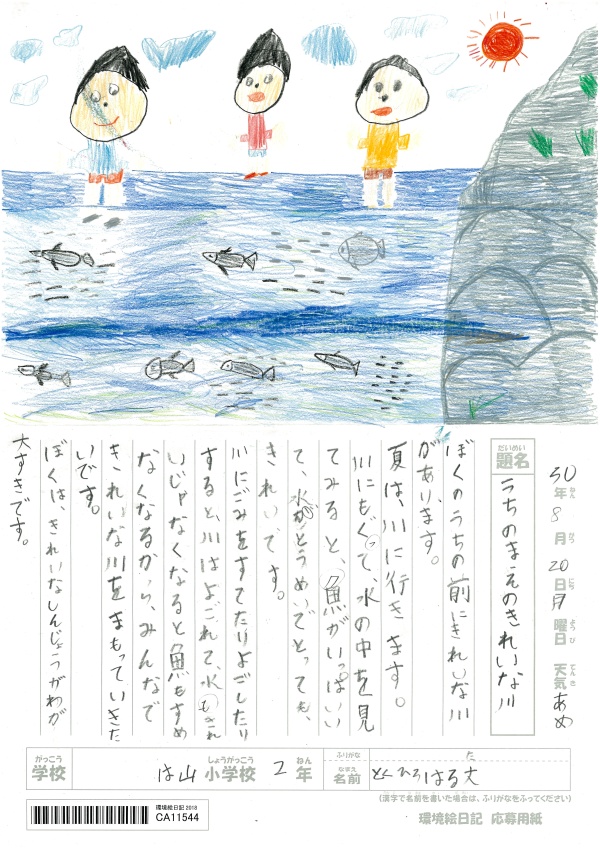 30年8月20日月曜日 天気 あめ
ねん がつ にち ようび てんき
だいめい
題名
うちのまえのきれいな川
ぼくのうちの前にきれいな川
があります。
夏は、川に行きます。
川にもぐって、水の中を見
てみると、魚がいっぱいい
て、水がとうめいでとっても、
きれいです。
川にごみをすてたりよごしたり
すると、川はよごれて、水もきれ
いじゃなくなると魚もすめ
なくなるから、みんなで
きれいな川をまもっていきた
いです。
ぼくは、きれいなしんじょうがわが
大すきです。
がっこう しょうがっこう ねん ふりがな た
学校 は山 小学校 2年 なまえ 名前 とくひろはる大
(漢字で名前を書いた場合は、ふりがなをふってください)
環境絵日記 2018
CA11544
環境絵日記 応募用紙